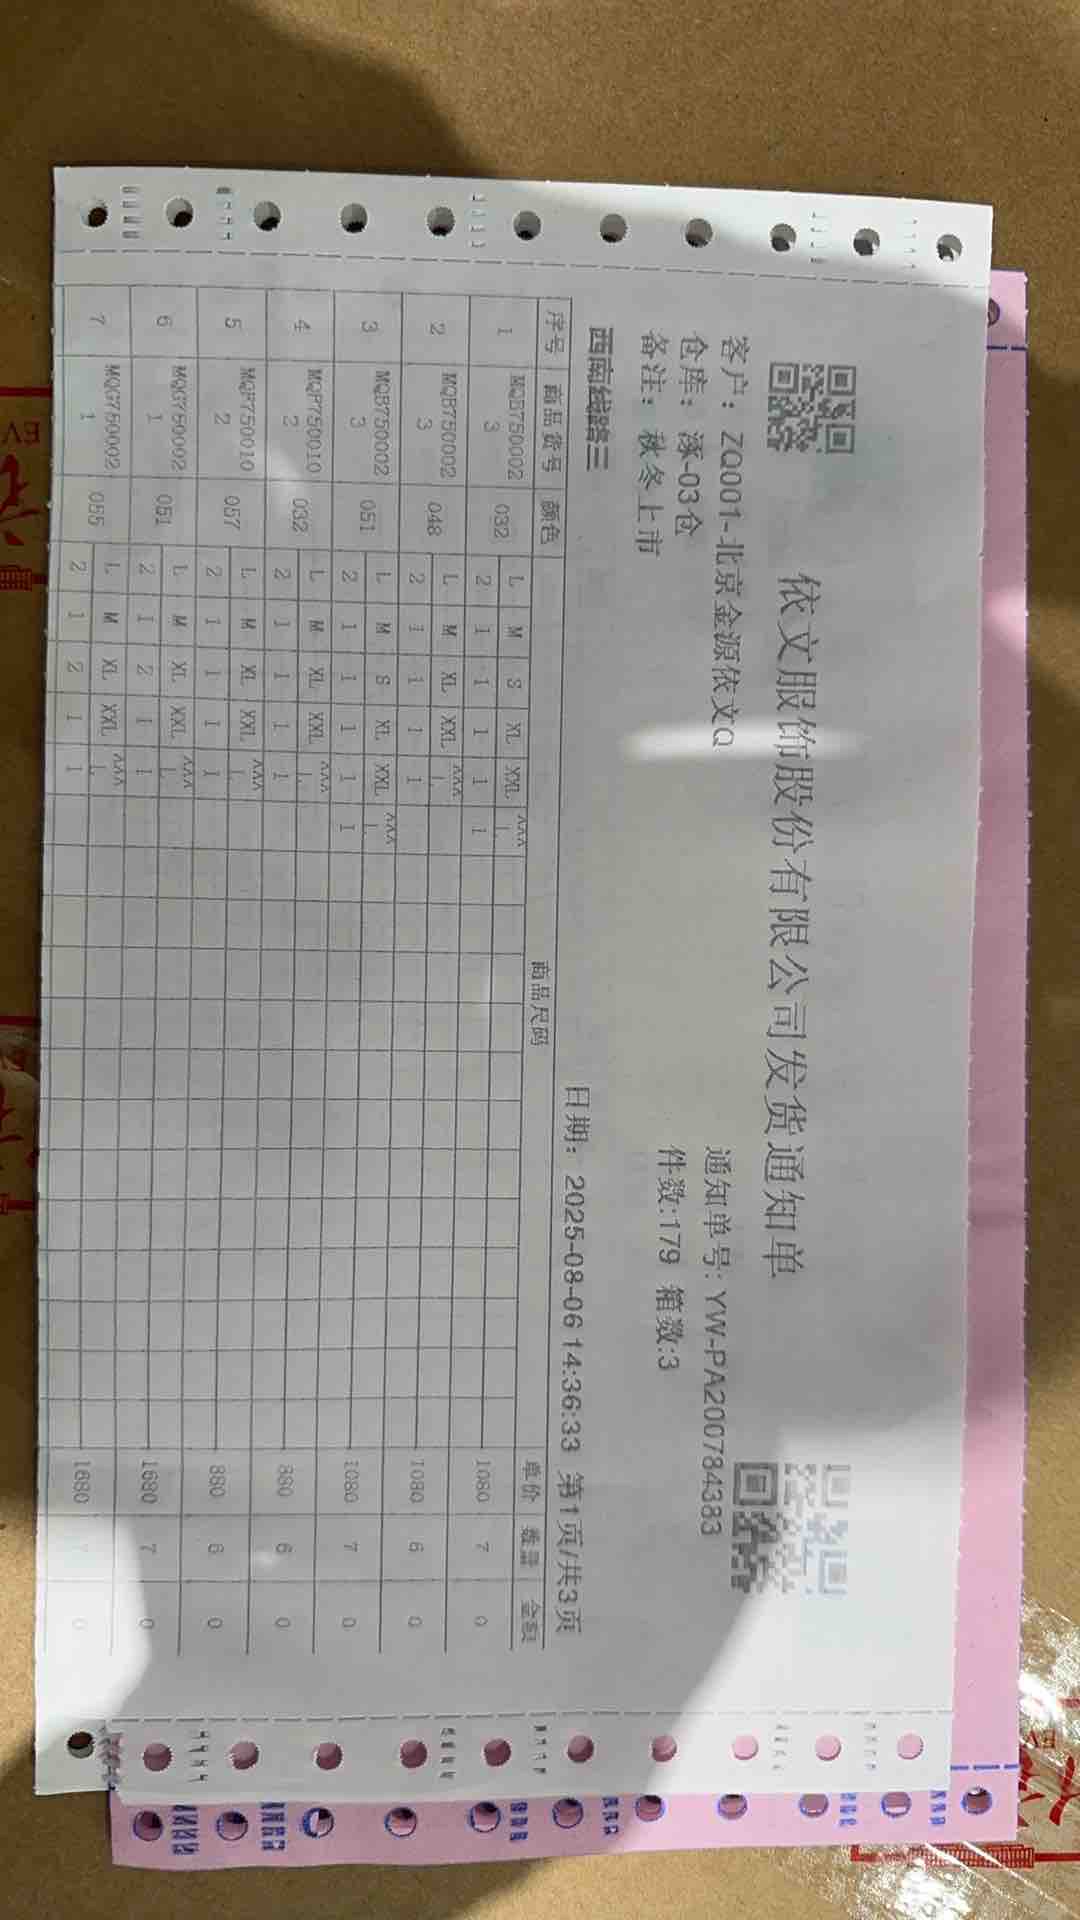 依文服饰股份有限公司发货通知单
客户: ZQ001-北京金源依文Q
通知单号: YW-PA200784383
仓库: 涿-03仓
件数:179 箱数:3
备注: 秋冬上市
西南线路三
日期: 2025-08-06 14:36:33 第1页/共3页
序号 商品货号 颜色 商品尺码 单价 数量 金额
L M S XL XXL XXXL
1 MQB7500023 032 2 1 1 1 1 1 1080 7 0
L M XL XXL XXXL
2 MQB7500023 048 2 1 1 1 1 1080 6 0
L M S XL XXL XXXL
3 MQB7500023 051 2 1 1 1 1 1 1080 7 0
L M XL XXL XXXL
4 MQF7500102 032 2 1 1 1 1 880 6 0
L M XL XXL XXXL
5 MQF7500102 057 2 1 1 1 1 880 6 0
L M XL XXL XXXL
6 MQG7500021 051 2 1 2 1 1 1680 7 0
L M XL XXL XXXL
7 MQG7500021 055 2 1 2 1 1 1680 7 0